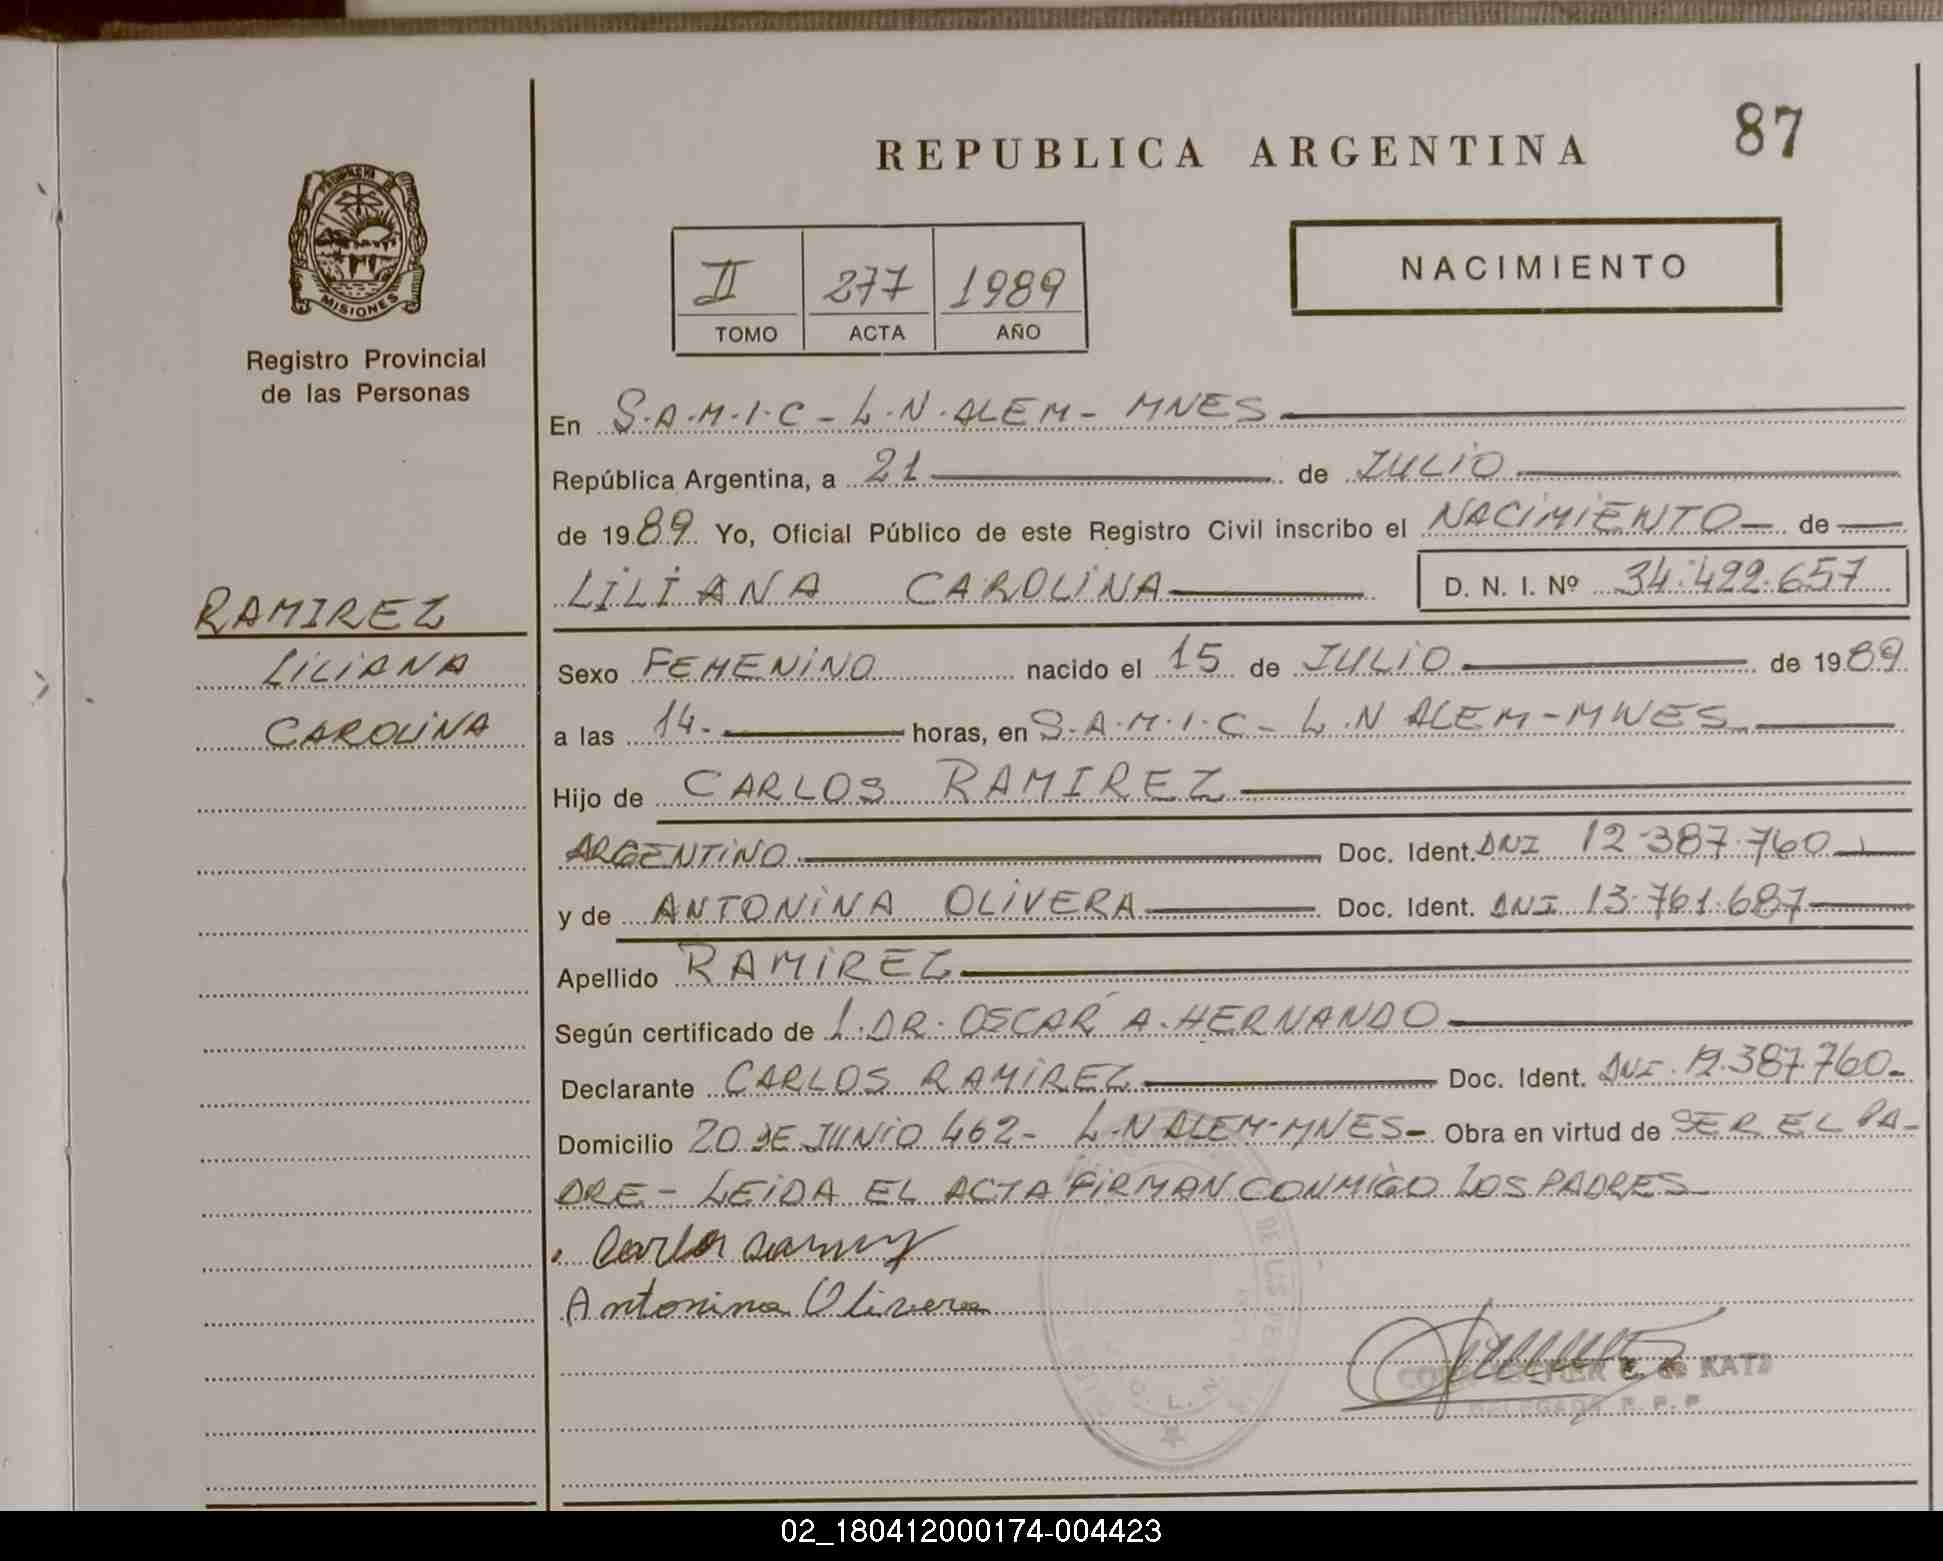 87
REPUBLICA ARGENTINA
MISIONES
Registro Provincial
de las Personas
II 277 1989
TOMO ACTA AÑO
NACIMIENTO
En S.A.M.I.C - L.N.ALEM - MNES
República Argentina, a 21 de JULIO
de 1989 Yo, Oficial Público de este Registro Civil inscribo el NACIMIENTO de
LILIANA CAROLINA D. N. I. Nº 34.422.657
RAMIREZ
LILIANA
CAROLINA
Sexo FEMENINO nacido el 15 de JULIO de 1989
a las 14- horas, en S.A.M.I.C - L.N ALEM-MNES
Hijo de CARLOS RAMIREZ
ARGENTINO Doc. Ident. DNI 12.387.760
y de ANTONINA OLIVERA Doc. Ident. DNI 13.761.687
Apellido RAMIREZ
Según certificado de DR. OSCAR A. HERNANDO
Declarante CARLOS RAMIREZ Doc. Ident. DNI. 12.387.760-
Domicilio 20 DE JUNIO 462- L.N ALEM-MNES- Obra en virtud de SER EL PA-
DRE - LEIDA EL ACTA FIRMAN CONMIGO LOS PADRES
Antonina Olivera
DE KATZ
DELEGADA R. P. P
02_180412000174-004423